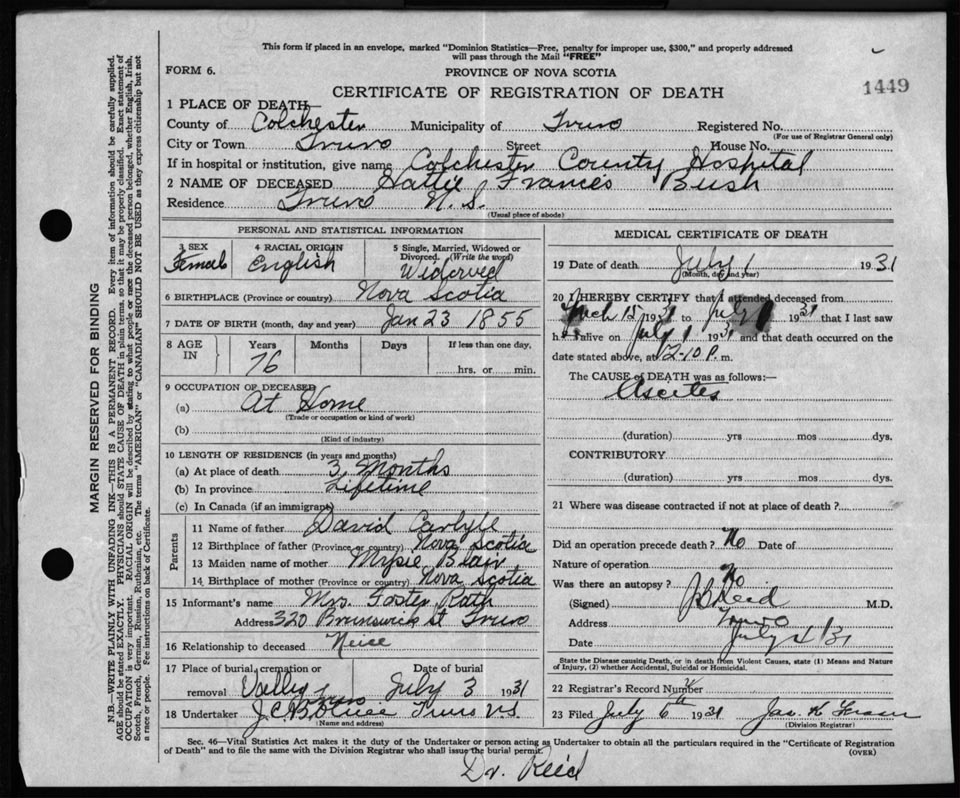 This form if placed in an envelope, marked "Dominion Statistics—Free, penalty for improper use, $300," and properly addressed
will pass through the Mail "FREE"
FORM 6.
PROVINCE OF NOVA SCOTIA
1449
CERTIFICATE OF REGISTRATION OF DEATH
1 PLACE OF DEATH—
County of Colchester Municipality of Truro Registered No.
(For use of Registrar General only)
City or Town Truro Street House No.
If in hospital or institution, give name Colchester County Hospital
2 NAME OF DECEASED Hattie Frances Bush
Residence Truro N.S.
(Usual place of abode)
PERSONAL AND STATISTICAL INFORMATION
3 SEX Female
4 RACIAL ORIGIN English
5 Single, Married, Widowed or
Divorced. (Write the word)
Widowed
6 BIRTHPLACE (Province or country) Nova Scotia
7 DATE OF BIRTH (month, day and year) Jan 23 1855
8 AGE IN Years Months Days If less than one day,
76 hrs. or min.
9 OCCUPATION OF DECEASED
(a) At Home
(Trade or occupation or kind of work)
(b)
(Kind of industry)
10 LENGTH OF RESIDENCE (in years and months)
(a) At place of death 3 Months
(b) In province Lifetime
(c) In Canada (if an immigrant)
Parents
11 Name of father David Carlyle
12 Birthplace of father (Province or country) Nova Scotia
13 Maiden name of mother Mysie Blair
14 Birthplace of mother (Province or country) Nova Scotia
15 Informant's name Mrs. Foster Rath
Address 320 Brunswick St Truro
16 Relationship to deceased Neice
17 Place of burial, cremation or Date of burial
removal Valley Truro July 3 1931
18 Undertaker Truro N.S.
(Name and address)
MEDICAL CERTIFICATE OF DEATH
19 Date of death July 1 1931
(Month, day and year)
20 I HEREBY CERTIFY that I attended deceased from
15 1931 to July 1 1931 that I last saw
h alive on July 1 1931 and that death occurred on the
date stated above, at 12-10 P. m.
The CAUSE of DEATH was as follows:—
Ascites
(duration) yrs mos dys.
CONTRIBUTORY
(duration) yrs mos dys.
21 Where was disease contracted if not at place of death?
Did an operation precede death? No Date of
Nature of operation
Was there an autopsy? No
(Signed) Reid M.D.
Address Truro
Date July 4/31
State the Disease causing Death, or in death from Violent Causes, state (1) Means and Nature
of Injury, (2) whether Accidental, Suicidal or Homicidal.
22 Registrar's Record Number
23 Filed July 6th 1931
(Division Registrar)
Sec. 46—Vital Statistics Act makes it the duty of the Undertaker or person acting as Undertaker to obtain all the particulars required in the "Certificate of Registration
of Death" and to file the same with the Division Registrar who shall issue the burial permit.
(OVER)
Dr. Reid
MARGIN RESERVED FOR BINDING
N.B.—WRITE PLAINLY WITH UNFADING INK—THIS IS A PERMANENT RECORD. Every item of information should be carefully supplied.
AGE should be stated EXACTLY. PHYSICIANS should STATE CAUSE OF DEATH in plain terms, so that it may be properly classified. Exact statement of
OCCUPATION is very important. RACIAL ORIGIN will be described by stating to what people or race the deceased person belonged, whether English, Irish,
Scotch, French, German, Russian, Ruthenian, etc. The terms "AMERICAN" or "CANADIAN" SHOULD NOT BE USED as they express citizenship but not
a race or people. Fee instructions on back of Certificate.